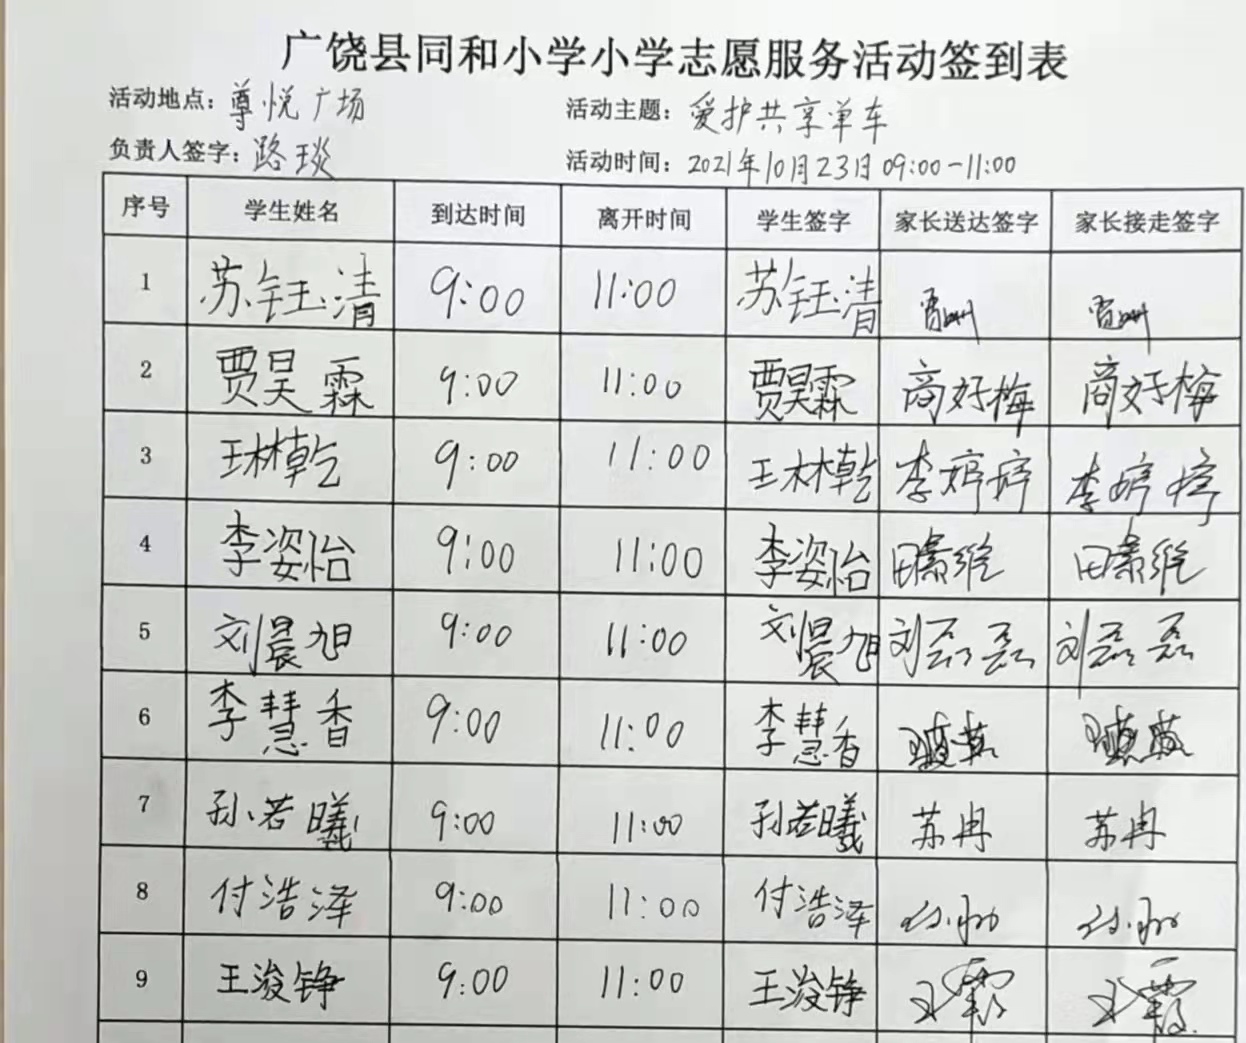 广饶县同和小学小学志愿服务活动签到表
活动地点：尊悦广场 活动主题：爱护共享单车
负责人签字：路琰 活动时间：2021年10月23日 09:00-11:00
序号 学生姓名 到达时间 离开时间 学生签字 家长送达签字 家长接走签字
1 苏钰清 9:00 11:00 苏钰清
2 贾昊霖 9:00 11:00 贾昊霖 商好梅 商好梅
3 王林乾 9:00 11:00 王林乾 李婷婷 李婷婷
4 李姿怡 9:00 11:00 李姿怡
5 刘晨旭 9:00 11:00 刘晨旭 刘磊磊 刘磊磊
6 李慧香 9:00 11:00 李慧香
7 孙若曦 9:00 11:00 孙若曦 苏冉 苏冉
8 付浩泽 9:00 11:00 付浩泽
9 王浚铮 9:00 11:00 王浚铮